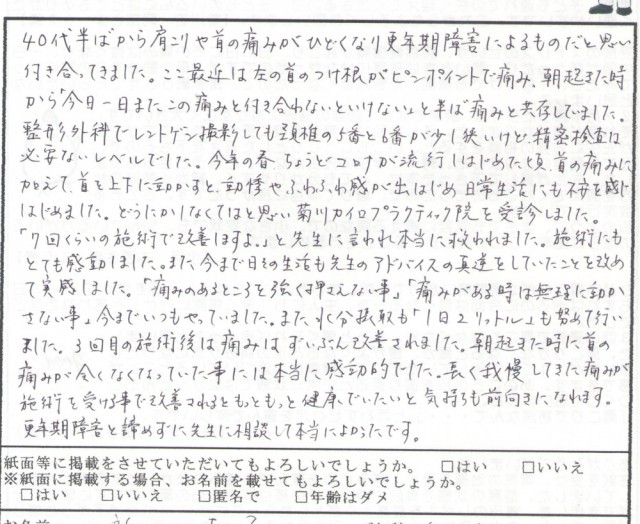 40代半ばから肩こりや首の痛みがひどくなり更年期障害によるものだと思い
付き合ってきました。ここ最近は左の首のつけ根がピンポイントで痛み、朝起きた時
から「今日一日またこの痛みと付き合わないといけない」と半ば痛みと共存していました。
整形外科でレントゲン撮影しても頚椎の5番と6番が少し狭いけど、精密検査は
必要ないレベルでした。今年の春ちょうどコロナが流行しはじめた頃、首の痛みに
加えて、首を上下に動かすと、動悸やふわふわ感が出はじめ日常生活にも不安を感じ
はじめました。どうにかしなくてはと思い菊川カイロプラクティック院を受診しました。
「7回くらいの施術で改善しますよ。」と先生に言われ本当に救われました。施術にも
とても感動しました。また今まで日々の生活も先生のアドバイスの真逆をしていたことを改め
て実感しました。「痛みのあるところを強く押さえない事」「痛みがある時は無理に動か
さない事」今までいつもやっていました。また水分摂取も「1日2リットル」も努めて行い
ました。3回目の施術後は痛みはずいぶん改善されました。朝起きた時に首の
痛みが全くなくなっていた事には本当に感動的でした。長く我慢してきた痛みが
施術を受ける事で改善されるともっともっと健康でいたいと気持ちも前向きになれます。
更年期障害と諦めずに先生に相談して本当によかったです。
紙面等に掲載をさせていただいてもよろしいでしょうか。 □はい □いいえ
※紙面に掲載する場合、お名前を載せてもよろしいでしょうか。
□はい □いいえ □匿名で □年齢はダメ